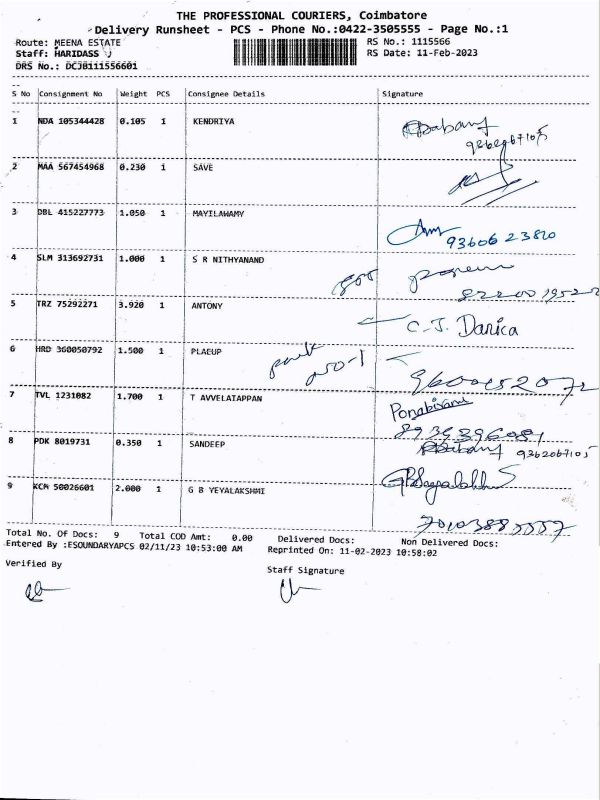 THE PROFESSIONAL COURIERS, Coimbatore
Delivery Runsheet - PCS - Phone No.:0422-3505555 - Page No.:1
Route: MEENA ESTATE
RS No.: 1115566
Staff: HARIDASS
RS Date: 11-Feb-2023
DRS No.: DCJB111556601
S No Consignment No Weight PCS Consignee Details Signature
1 NDA 105344428 0.105 1 KENDRIYA
9362067105
2 MAA 567454968 0.230 1 SAVE
3 DBL 415227773 1.050 1 MAYILAWAMY
93606 23820
4 SLM 313692731 1.000 1 S R NITHYANAND
5 TRZ 75292271 3.920 1 ANTONY
C.J. Darica
6 HRD 360050792 1.500 1 PLAEUP
7 TVL 1231082 1.700 1 T AVVELAIAPPAN
8 PDK 8019731 0.350 1 SANDEEP
9362067105
9 KCM 50026601 2.000 1 G B YEYALAKSHMI
Total No. Of Docs: 9 Total COD Amt: 0.00 Delivered Docs: Non Delivered Docs:
Entered By :ESOUNDARYAPCS 02/11/23 10:53:00 AM Reprinted On: 11-02-2023 10:58:02
Verified By
Staff Signature